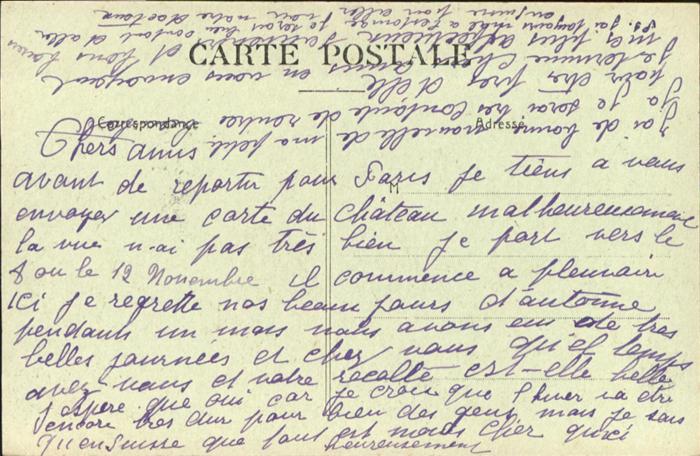 CARTE POSTALE
Correspondance
Adresse
Chers amis
avant de repartir pour Paris je tiens a vous
envoyer une carte du château malheureusement
la vue n'ai pas très bien je part vers le
8 ou le 12 Novembre il commence a pleuvoir
ici je regrette nos beau jours d'automne
pendants un mois nous avons eus de tres
belles journées et chez vous quel temps
avez-vous et votre récolte est-elle belle
j'espère que oui car je crois que l'hiver va être
encore tres dur pour bien des gens mais je sais
qu'en Suisse que tout est moins cher qu'ici
heureusement
j'ai de bonnes nouvelle de ma petite
je serai tres contente de rentrer
pour être près d'elle
je termine chers amis en vous envoyant
mes plus affectueux et bons baisers